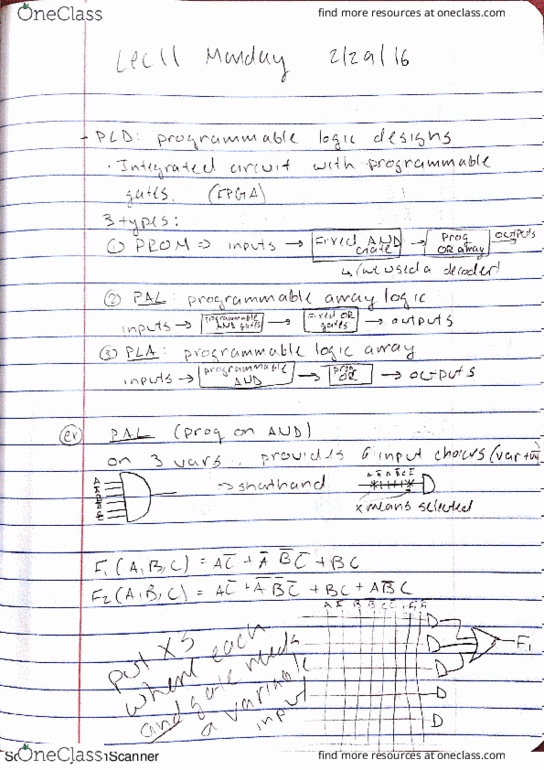 OneClass
find more resources at oneclass.com
Lec 11 Monday 2/29/16
- PLD: programmable logic designs
· Integrated circuit with programmable
gates. (FPGA)
3 types:
① PROM => inputs → Fixed AND Gate → Prog OR array → outputs
↳ (we used a decoder)
② PAL: programmable array logic
inputs → programmable AND gates → Fixed OR gates → outputs
③ PLA: programmable logic array
inputs → programmable AND → prog OR → outputs
ex PAL (prog on AND)
on 3 vars. provides 6 input choices (var +
→ shorthand
x means selected
F₁(A,B,C) = AC̅ + A̅ B̅ C̅ + BC
F₂(A,B,C) = AC̅ + A̅ B̅ C̅ + BC + AB̅C
put X's
where each
and gate needs
a variable
input
F₁
OneClass
Scanner
find more resources at oneclass.com
find more resources at oneclass.com